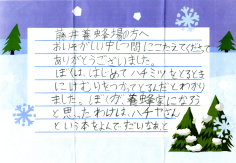 藤井養蜂場の方へ
おいそがしい中しつ問にこたえてくださって
ありがとうございました。
ぼくは、はじめてハチミツをとるとき
にけむりをつかってとるんだとわかり
ました。ぼくが、養蜂家になろう
と思ったわけは、ハチヤさん
という本をよんで、だいなあと